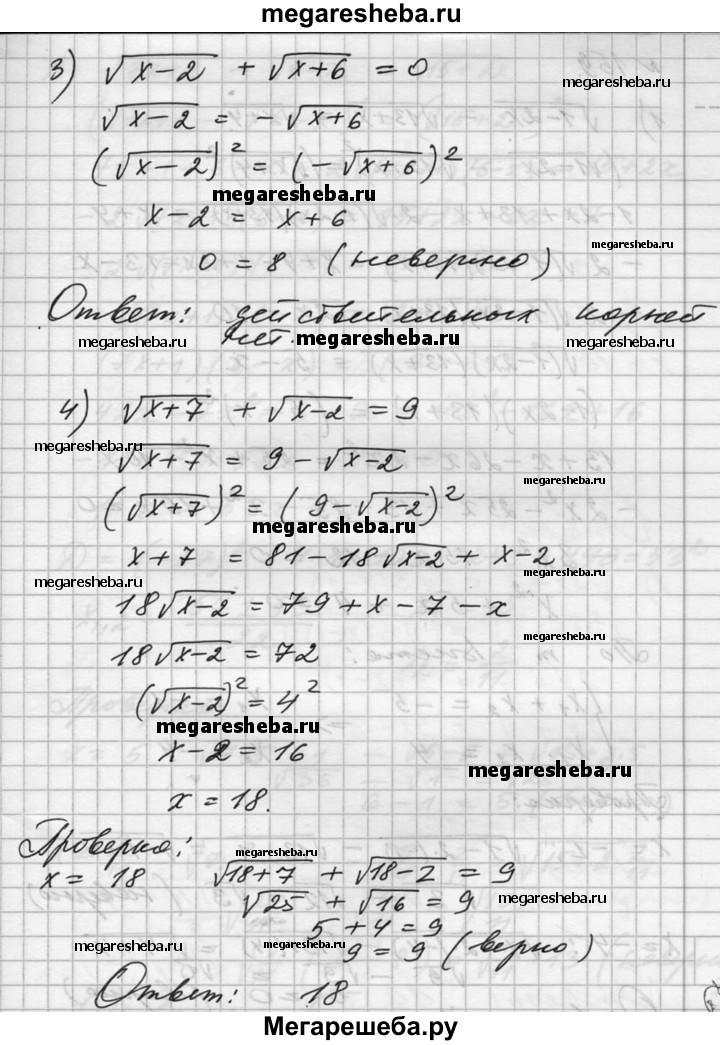 megaresheba.ru
3) √(x-2) + √(x+6) = 0
megaresheba.ru
√(x-2) = -√(x+6)
(√(x-2))² = (-√(x+6))²
megaresheba.ru
x-2 = x+6
megaresheba.ru
0 = 8 (неверно)
Ответ: действительных корней
нет.
megaresheba.ru megaresheba.ru megaresheba.ru
4) √(x+7) + √(x-2) = 9
megaresheba.ru
√(x+7) = 9-√(x-2)
megaresheba.ru
(√(x+7))² = (9-√(x-2))²
megaresheba.ru
x+7 = 81-18√(x-2) + x-2
megaresheba.ru megaresheba.ru
18√(x-2) = 79+x-7-x
megaresheba.ru
18√(x-2) = 72
(√(x-2))² = 4²
megaresheba.ru
x-2 = 16
megaresheba.ru
x = 18.
Проверка:
megaresheba.ru
x = 18 √(18+7) + √(18-2) = 9
√25 + √16 = 9
megaresheba.ru
5+4 = 9
9 = 9 (верно)
megaresheba.ru megaresheba.ru megaresheba.ru
Ответ: 18
Мегарешеба.ру